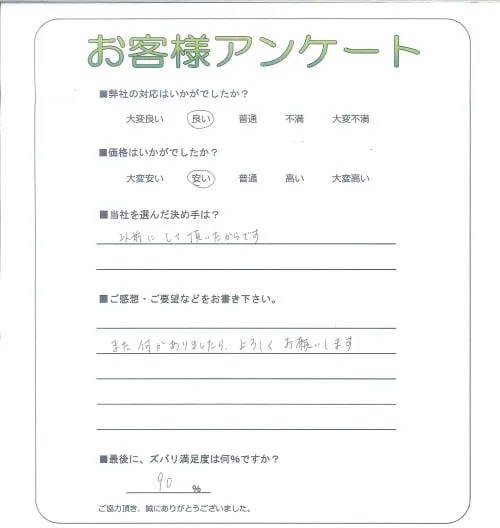 お客様アンケート
■弊社の対応はいかがでしたか?
大変良い 良い 普通 不満 大変不満
■価格はいかがでしたか?
大変安い 安い 普通 高い 大変高い
■当社を選んだ決め手は?
以前にして頂いたからです
■ご感想・ご要望などをお書き下さい。
また何かありましたら、よろしくお願いします
■最後に、ズバリ満足度は何%ですか?
90 %
ご協力頂き、誠にありがとうございました。